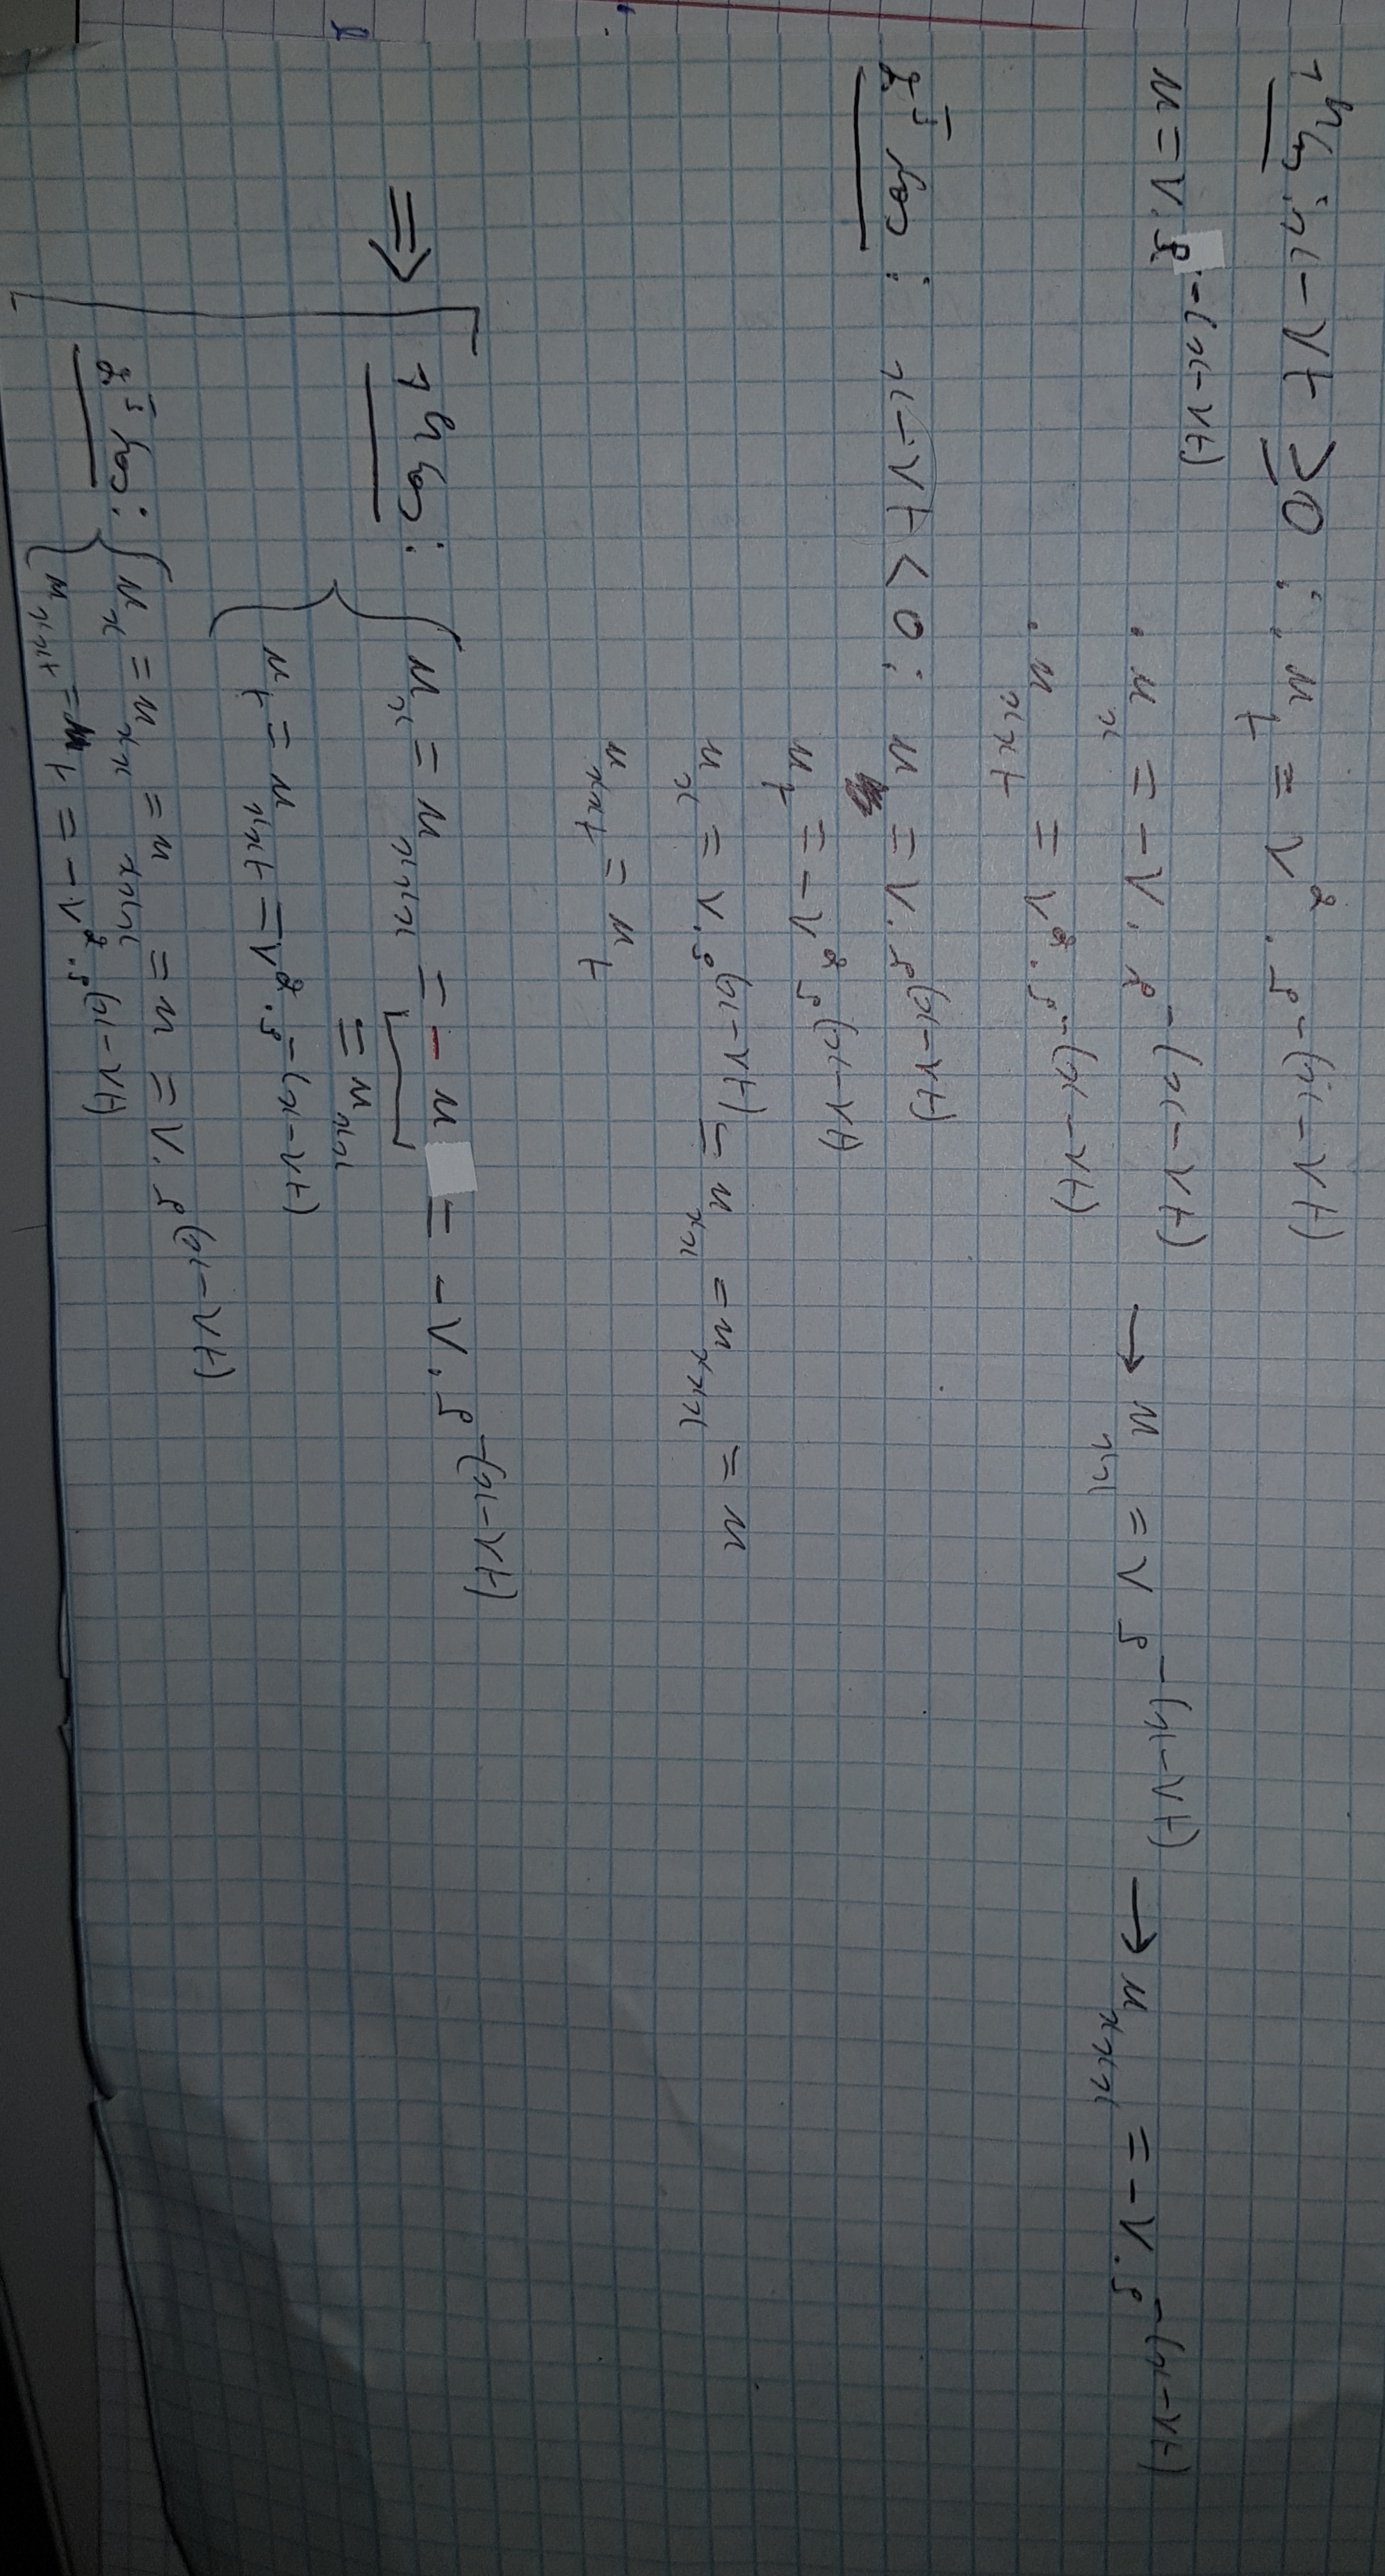 1er cas : x-vt ≥ 0 : . u_t = v² . e^-(x-vt)
u = v . e^-(x-vt)
. u_x = -v . e^-(x-vt) → u_xx = v e^-(x-vt) → u_xxx = -v . e^-(x-vt)
. u_xxt = v² . e^-(x-vt)
2e cas : x-vt < 0 : u = v . e^(x-vt)
u_t = -v² e^(x-vt)
u_x = v . e^(x-vt) = u_xx = u_xxx = u
u_xxt = u_t
⇒ 1er cas : u_x = u_xxx = - u = -v . e^-(x-vt)
= u_xx
u_t = u_xxt = v² . e^-(x-vt)
2e cas : u_x = u_xx = u_xxx = u = v . e^(x-vt)
u_xxt = u_t = -v² . e^(x-vt)